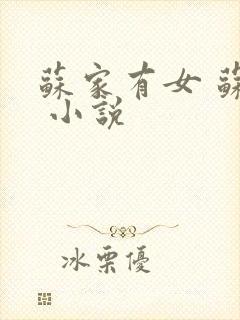 蘇家有女 蘇
小說
冰栗優